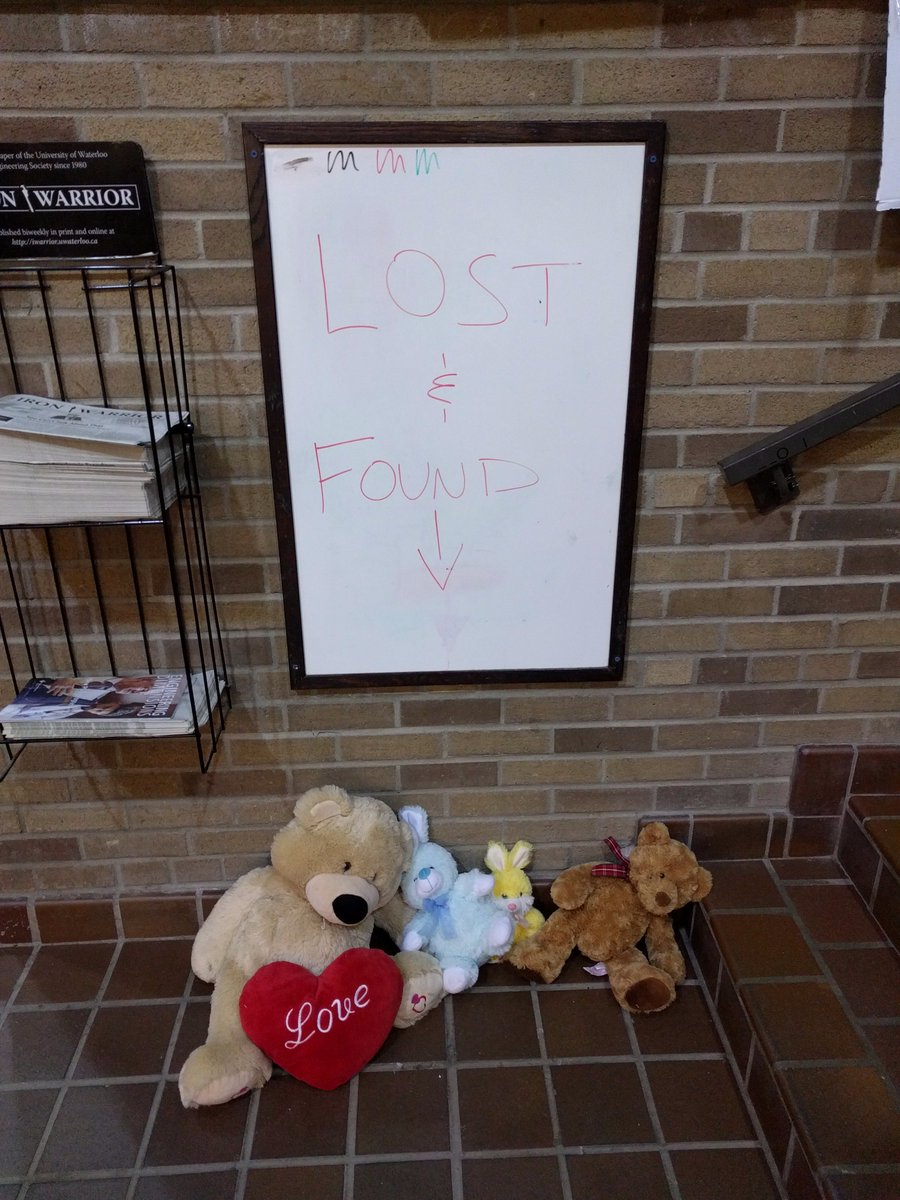 aper of the University of Waterloo
gineering Society since 1980
ON WARRIOR
blished biweekly in print and online at
http://iwarrior.uwaterloo.ca
m m m
LOST
&
FOUND
IRON WARRIOR
Love